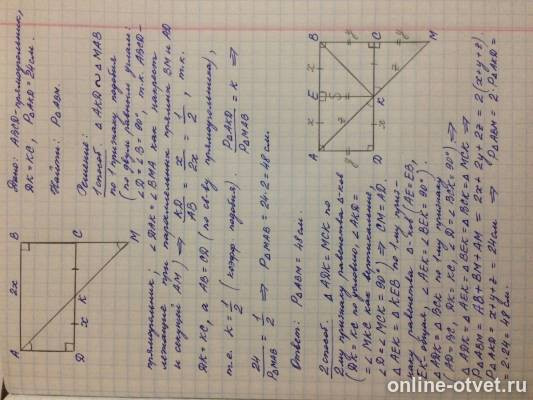 Дано: ABCD-прямоугольник,
DK = KC, P△AKD = 24см.
Найти: P△ABM.
Решение:
1 способ. △AKD ∾ △MAB
по 1 признаку подобия
(по двум равным углам:
∠D = ∠B = 90°, т.к. ABCD-
прямоугольник; ∠DAK = ∠BMA как накрест
лежащие при параллельных прямых BM и AD
и секущей AM) ⇒ KD/AB = x/2x = 1/2, т.к.
DK = KC, а AB = CD (по св-ву прямоугольника),
т.е. k = 1/2 (коэфф. подобия). P△AKD/P△MAB = k ⇒
24/P△MAB = 1/2 ⇒ P△MAB = 24·2 = 48 см.
Ответ: P△ABM = 48 см.
2 способ. △ADK = △MCK по
2му признаку равенства △-ков
(DK = KC по условию, ∠AKD =
= ∠MKC как вертикальные,
∠D = ∠MCK = 90°) ⇒ CM = AD.
△AEK = △KEB по 1му приз-
наку равенства △-ков (AE = EB,
EK - общая, ∠AEK = ∠BEK = 90°).
△ADK = △BCK по 1му признаку
(AD = BC, DK = KC, ∠D = ∠BCK = 90°) ⇒
△ADK = △AEK = △BEK = △BCK = △MCK ⇒
P△ABM = AB + BM + AM = 2x + 2y + 2z = 2(x+y+z).
P△AKD = x+y+z = 24см ⇒ P△ABM = 2·P△AKD =
= 2·24 = 48 см.
A
B
2x
D
x
K
C
M
A
x
E
x
B
y
S
y
z
z
D
x
K
x
C
y
z
M
online-otvet.ru